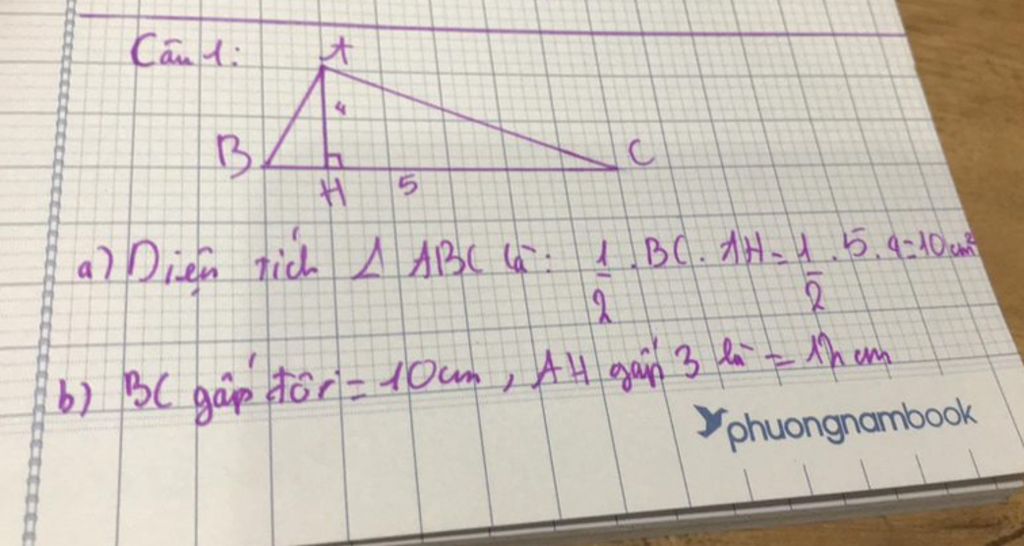 Câu 1:
A
4
B
C
H
5
a) Diện tích Δ ABC là: 1/2 . BC . AH = 1/2 . 5 . 4 = 10 cm²
b) BC gấp đôi = 10cm, AH gấp 3 là = 12 cm
phuongnambook